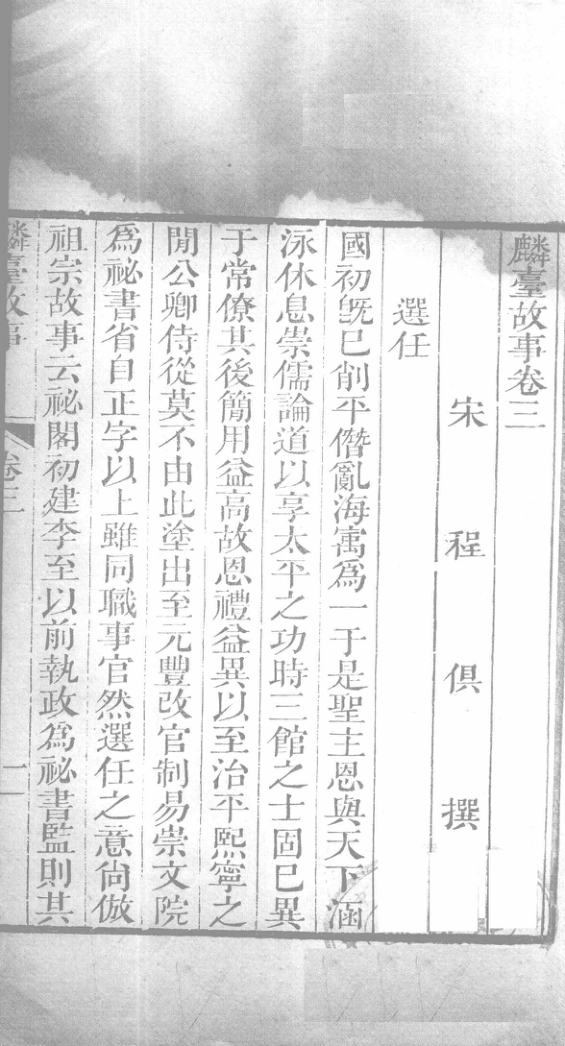 麟臺故事卷三
宋程俱撰
選任
國初旣已削平僭亂海㝢爲一于是聖主恩與天下涵
泳休息崇儒論道以享太平之功時三館之士固已異
于常僚其後簡用益高故恩禮益異以至治平熙寧之
閒公卿侍從莫不由此塗出至元豐改官制易崇文院
爲祕書省自正字以上雖同職事官然選任之意尙倣
祖宗故事云祕閣初建李至以前執政爲祕書監則其
麟臺故事 卷三 一